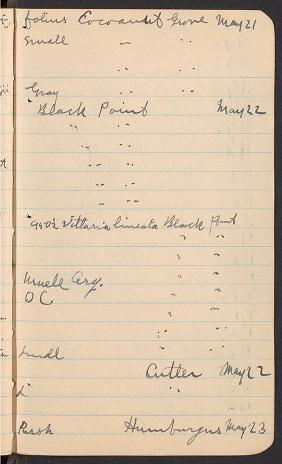 folius Cocoanut Grove May 21
Small " "
" "
Gray " "
Black Point May 22
" "
" "
" "
" "
" "
950½ Vittaria lineata Black Point
" "
" "
Muell Arg. " "
O C " "
" "
" "
Lindl
Cutler May 22
L "
Pursh Humburgus May 23